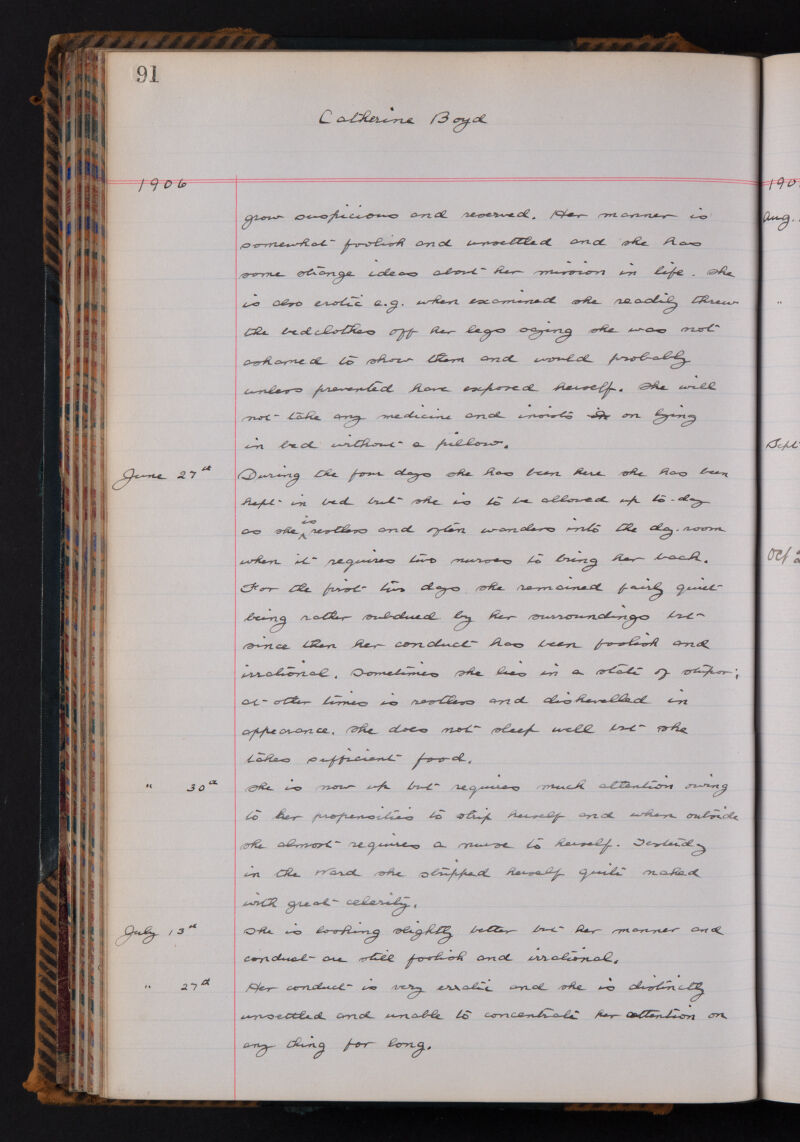 91
Catherine Boyd
1906
190
grow suspicious and reserved. Her manner is
Aug.
somewhat foolish and unsettled and she has
some strange ideas about her mission in life. She
is also erotic e.g. when examined she readily threw
"
the bedclothes off her legs saying she was not
ashamed to show them and would probably
unless prevented have exposed herself. She will
not take any medicine and insists in on lying
in bed without a pillow.
Sept
June 27th During the four days she has been here she has been
kept in bed but she is to be allowed up to-day
as she is restless and often wanders into the day-room
when it requires two nurses to bring her back.
Oct 2
For the first two days she remained fairly quiet
being rather subdued by her surroundings but
since then her conduct has been foolish and
irrational. Sometimes she lies in a state of stupor;
at other times is restless and dishevelled in
appearance. She does not sleep well but she
takes sufficient food.
" 30th She is now up but requires much attention owing
to her propensities to strip herself and when outside
she almost requires a nurse to herself. Yesterday
in the Ward she stripped herself quite naked
with great celerity.
July 13th She is looking slightly better but her manner and
conduct are still foolish and irrational.
" 27th Her conduct is very erratic and she is distinctly
unsettled and unable to concentrate her attention on
any thing for long.